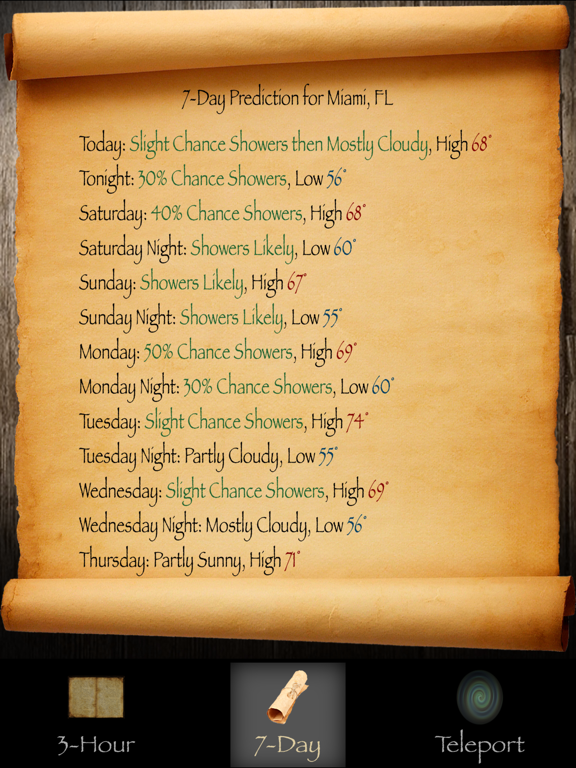 7-Day Prediction for Miami, FL
Today: Slight Chance Showers then Mostly Cloudy, High 68°
Tonight: 30% Chance Showers, Low 56°
Saturday: 40% Chance Showers, High 68°
Saturday Night: Showers Likely, Low 60°
Sunday: Showers Likely, High 67°
Sunday Night: Showers Likely, Low 55°
Monday: 50% Chance Showers, High 69°
Monday Night: 30% Chance Showers, Low 60°
Tuesday: Slight Chance Showers, High 74°
Tuesday Night: Partly Cloudy, Low 55°
Wednesday: Slight Chance Showers, High 69°
Wednesday Night: Mostly Cloudy, Low 56°
Thursday: Partly Sunny, High 71°
3-Hour 7-Day Teleport